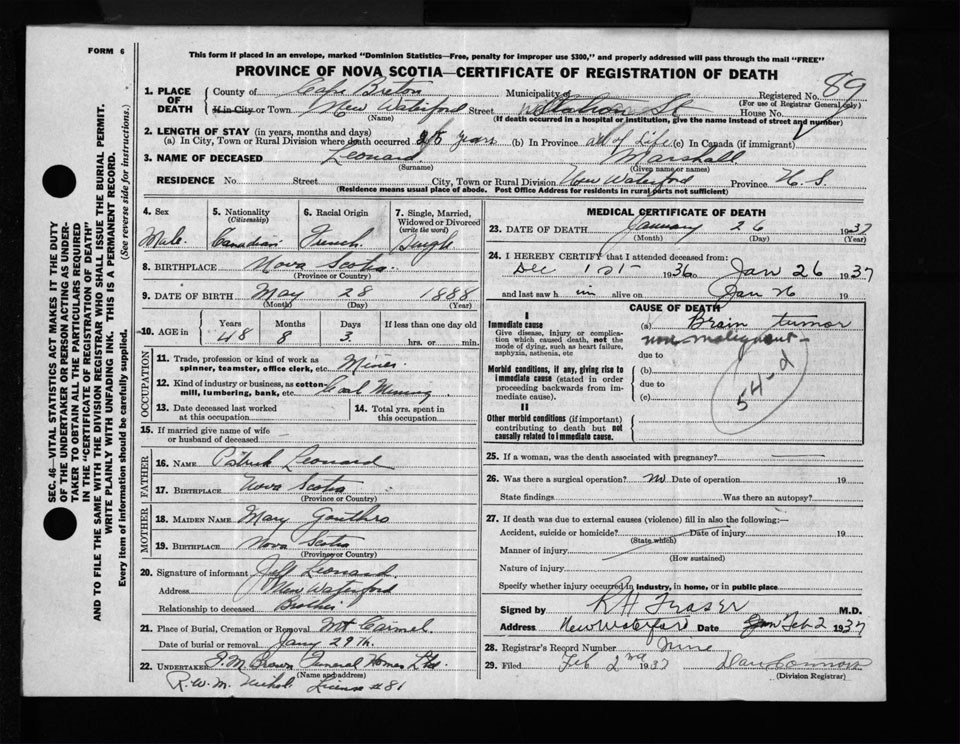 FORM 6
This form if placed in an envelope, marked "Dominion Statistics—Free, penalty for improper use $300," and properly addressed will pass through the mail "FREE"
PROVINCE OF NOVA SCOTIA—CERTIFICATE OF REGISTRATION OF DEATH
SEC. 46—VITAL STATISTICS ACT MAKES IT THE DUTY
OF THE UNDERTAKER OR PERSON ACTING AS UNDER-
TAKER TO OBTAIN ALL THE PARTICULARS REQUIRED
IN THE "CERTIFICATE OF REGISTRATION OF DEATH"
AND TO FILE THE SAME WITH THE DIVISION REGISTRAR WHO SHALL ISSUE THE BURIAL PERMIT.
WRITE PLAINLY WITH UNFADING INK. THIS IS A PERMANENT RECORD.
Every item of information should be carefully supplied. (See reverse side for instructions.)
1. PLACE OF DEATH
County of Cape Breton Municipality of Registered No. 89
(For use of Registrar General only)
If in City or Town New Waterford Street St House No.
(Name) (If death occurred in a hospital or institution, give the name instead of street and number)
2. LENGTH OF STAY (in years, months and days)
(a) In City, Town or Rural Division where death occurred years (b) In Province all of Life (c) In Canada (if immigrant)
3. NAME OF DECEASED Leonard Marshall
(Surname) (Given name or names)
RESIDENCE No. Street City, Town or Rural Division New Waterford Province N.S.
(Residence means usual place of abode. Post Office Address for residents in rural parts not sufficient)
4. Sex Male
5. Nationality (Citizenship) Canadian
6. Racial Origin French
7. Single, Married, Widowed or Divorced (write the word) Single
8. BIRTHPLACE Nova Scotia
(Province or Country)
9. DATE OF BIRTH May 28 1888
(Month) (Day) (Year)
10. AGE in Years 48 Months 8 Days 3 If less than one day old hrs. or min.
OCCUPATION
11. Trade, profession or kind of work as spinner, teamster, office clerk, etc. Miner
12. Kind of industry or business, as cotton mill, lumbering, bank, etc. Coal Mining
13. Date deceased last worked at this occupation
14. Total yrs. spent in this occupation
15. If married give name of wife or husband of deceased
FATHER
16. NAME Patrick Leonard
17. BIRTHPLACE Nova Scotia
(Province or Country)
MOTHER
18. MAIDEN NAME Mary Gouthro
19. BIRTHPLACE Nova Scotia
(Province or Country)
20. Signature of informant Jeff Leonard
Address New Waterford
Relationship to deceased Brother
21. Place of Burial, Cremation or Removal Mt Carmel
Date of burial or removal Jany 29th.
22. UNDERTAKER J.M. Brown Funeral Homes Ltd.
(Name and address)
R.W.M. License #81
MEDICAL CERTIFICATE OF DEATH
23. DATE OF DEATH January 26 1937
(Month) (Day) (Year)
24. I HEREBY CERTIFY that I attended deceased from:
Dec 1st 1936 to Jan 26 1937
and last saw h im alive on Jan 26 19
CAUSE OF DEATH
I
Immediate cause
Give disease, injury or complication which caused death, not the mode of dying, such as heart failure, asphyxia, asthenia, etc
(a) Brain tumor
non malignant
due to
Morbid conditions, if any, giving rise to immediate cause (stated in order proceeding backwards from immediate cause).
(b)
due to
(c)
54-d
II
Other morbid conditions (if important) contributing to death but not causally related to immediate cause.
25. If a woman, was the death associated with pregnancy?
26. Was there a surgical operation? no Date of operation 19
State findings Was there an autopsy?
27. If death was due to external causes (violence) fill in also the following:—
Accident, suicide or homicide? Date of injury 19
(State which)
Manner of injury
(How sustained)
Nature of injury
Specify whether injury occurred in industry, in home, or in public place
Signed by R H Fraser M.D.
Address New Waterford Date Feb 2 1937
28. Registrar's Record Number Nine
29. Filed Feb 2nd 1937 Dan Connors
(Division Registrar)